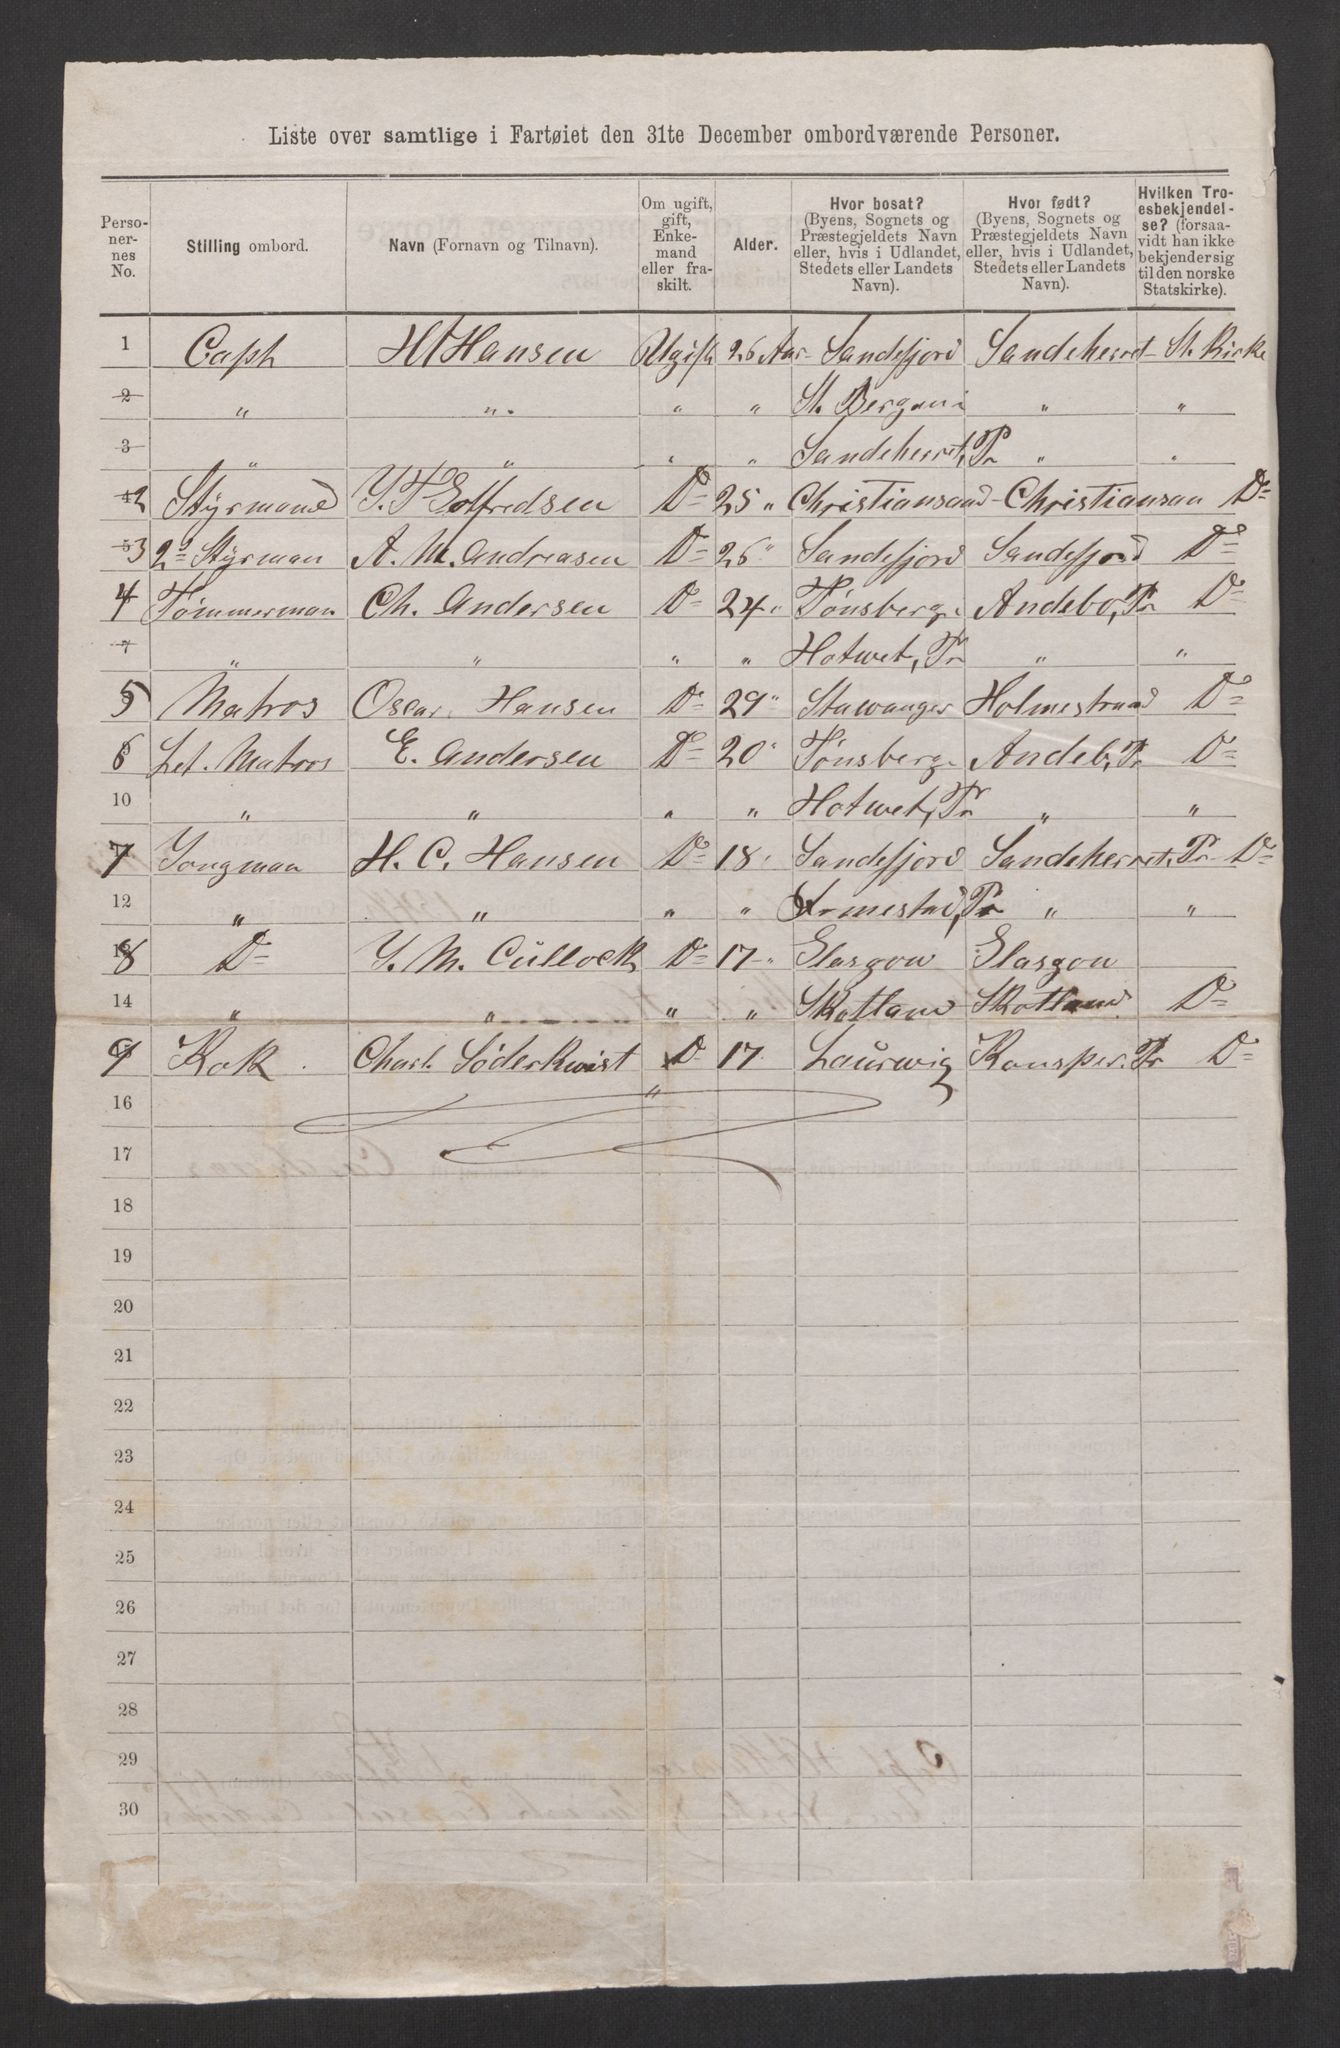 Liste over samtlige i Fartøiet den 31te December ombordværende Personer.
Perso-nernes No. | Stilling ombord. | Navn (Fornavn og Tilnavn). | Om ugift, gift, Enkemand eller fraskilt. | Alder. | Hvor bosat? (Byens, Sognets og Præstegjeldets Navn eller, hvis i Udlandet, Stedets eller Landets Navn). | Hvor født? (Byens, Sognets og Præstegjeldets Navn eller, hvis i Udlandet, Stedets eller Landets Navn). | Hvilken Troesbekjendelse? (forsaavidt han ikke bekjender sig til den norske Statskirke).
1 Capt H Hansen Ugift 26 Aar Sandefjord Sandeherret St. Kirke
2 " " " " St. Bergan " "
3 " " " " Sandeherret, Pr " "
2 Styrmand Y. T Golfredsen D= 25 " Christiansand Christiansan D=
3 2n Styrman A. M. Andreasen D= 26 " Sandefjord Sandefjord D=
4 Tømmerman Ch. Andersen D= 24 " Tønsberg Andebo, Pr D=
7 " " " " Hotvet, Pr " "
5 Matros Oscar Hansen D= 29 " Stavanger Holmestrand D=
6 Let. Matros E. Andersen D= 20 " Tønsberg Andeb, Pr D=
10 " " " " Hotvet, Pr " "
7 Yongman H. C. Hansen D= 18 " Sandefjord Sandeherret, Pr D=
12 " " " " Pr " "
8 D= Y. M. Cullock D= 17 " Glasgow Glasgow
14 " " " " Skotland Skotland D=
9 Kok Charl. Söderkwist D= 17 Laurwig Pr D=
16 "
17
18
19
20
21
22
23
24
25
26
27
28
29
30